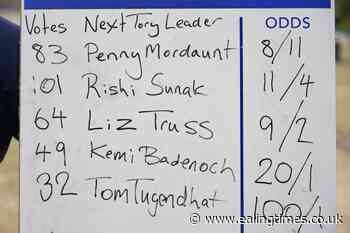 Votes Next Tory Leader ODDS
83 Penny Mordaunt 8/11
101 Rishi Sunak 11/4
64 Liz Truss 9/2
49 Kemi Badenoch 20/1
32 Tom Tugendhat 100/1
www.ealingtimes.co.uk